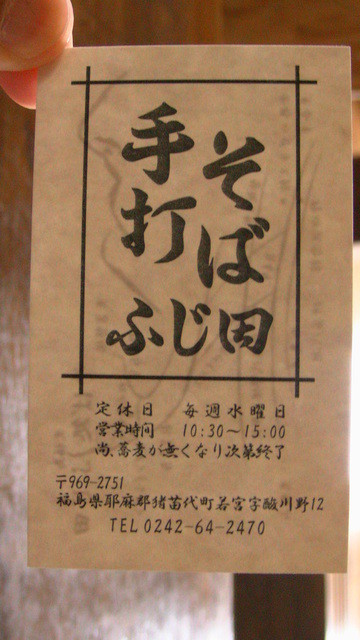 手打
そば
ふじ田
定休日 毎週水曜日
営業時間 10:30～15:00
尚、蕎麦が無くなり次第終了
〒969-2751
福島県耶麻郡猪苗代町若宮字酸川野12
TEL 0242-64-2470